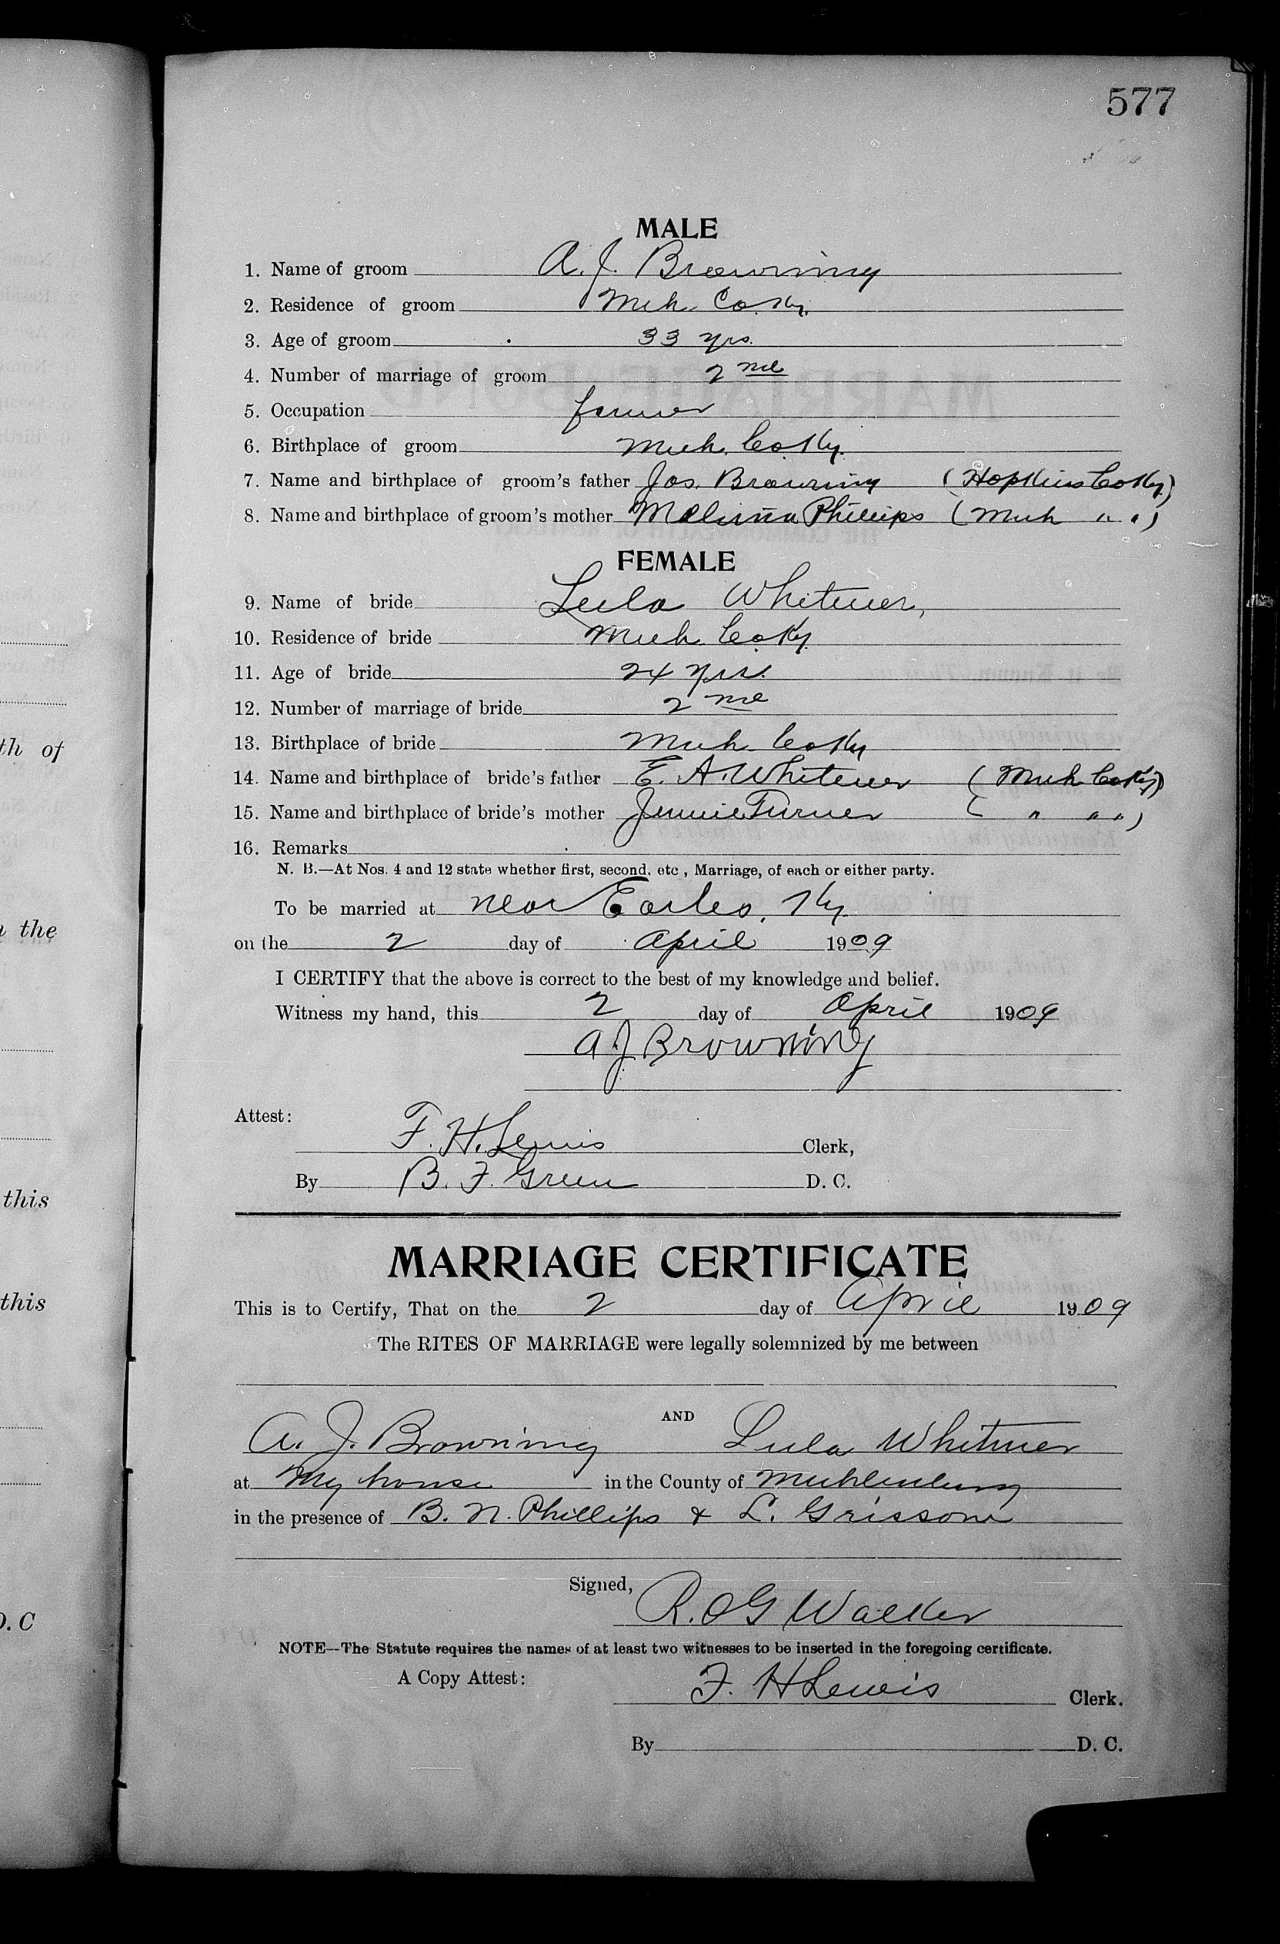 577
MALE
1. Name of groom A. J. Browning
2. Residence of groom Muh. Co. Ky.
3. Age of groom 33 yrs.
4. Number of marriage of groom 2nd
5. Occupation farmer
6. Birthplace of groom Muh. Co Ky.
7. Name and birthplace of groom's father Jos. Browning (Hopkins Co Ky)
8. Name and birthplace of groom's mother Phillips (Muh " ")
FEMALE
9. Name of bride Lula Whitmer,
10. Residence of bride Muh Co Ky
11. Age of bride 24 yrs.
12. Number of marriage of bride 2nd
13. Birthplace of bride Muh. Co Ky
14. Name and birthplace of bride's father E. A. Whitmer (Muh Co Ky)
15. Name and birthplace of bride's mother Jennie Turner ( " " ")
16. Remarks
N. B.—At Nos. 4 and 12 state whether first, second, etc , Marriage, of each or either party.
To be married at near Earles, Ky
on the 2 day of April 1909
I CERTIFY that the above is correct to the best of my knowledge and belief.
Witness my hand, this 2 day of April 1909
A J Browning
Attest:
F. H. Lewis Clerk,
By B. F. Green D. C.
MARRIAGE CERTIFICATE
This is to Certify, That on the 2 day of April 1909
The RITES OF MARRIAGE were legally solemnized by me between
AND
A. J. Browning Lula Whitmer
at My house in the County of Muhlenburg
in the presence of B. N. Phillips & L. Grissom
Signed,
R. O G Walker
NOTE—The Statute requires the names of at least two witnesses to be inserted in the foregoing certificate.
A Copy Attest:
F. H Lewis Clerk.
By D. C.
th of
the
this
this
D. C